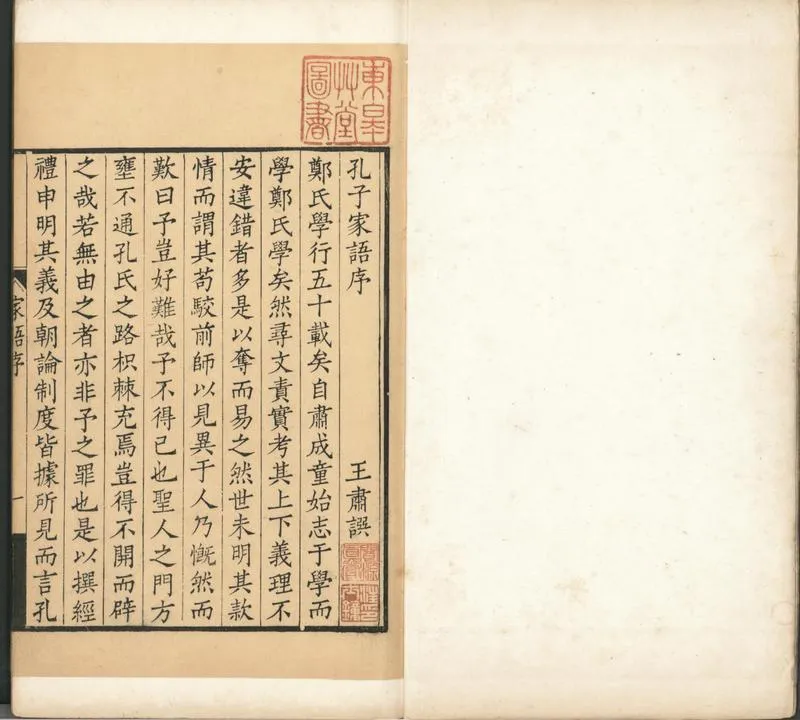 東皋
艸堂
圖書
孔子家語序 王肅譔
鄭氏學行五十載矣自肅成童始志于學而
學鄭氏學矣然尋文責實考其上下義理不
安違錯者多是以奪而易之然世未明其款
情而謂其苟駮前師以見異于人乃慨然而
歎曰予豈好難哉予不得已也聖人之門方
壅不通孔氏之路枳棘充焉豈得不開而辟
之哉若無由之者亦非予之罪也是以撰經
禮申明其義及朝論制度皆據所見而言孔
家語序 一